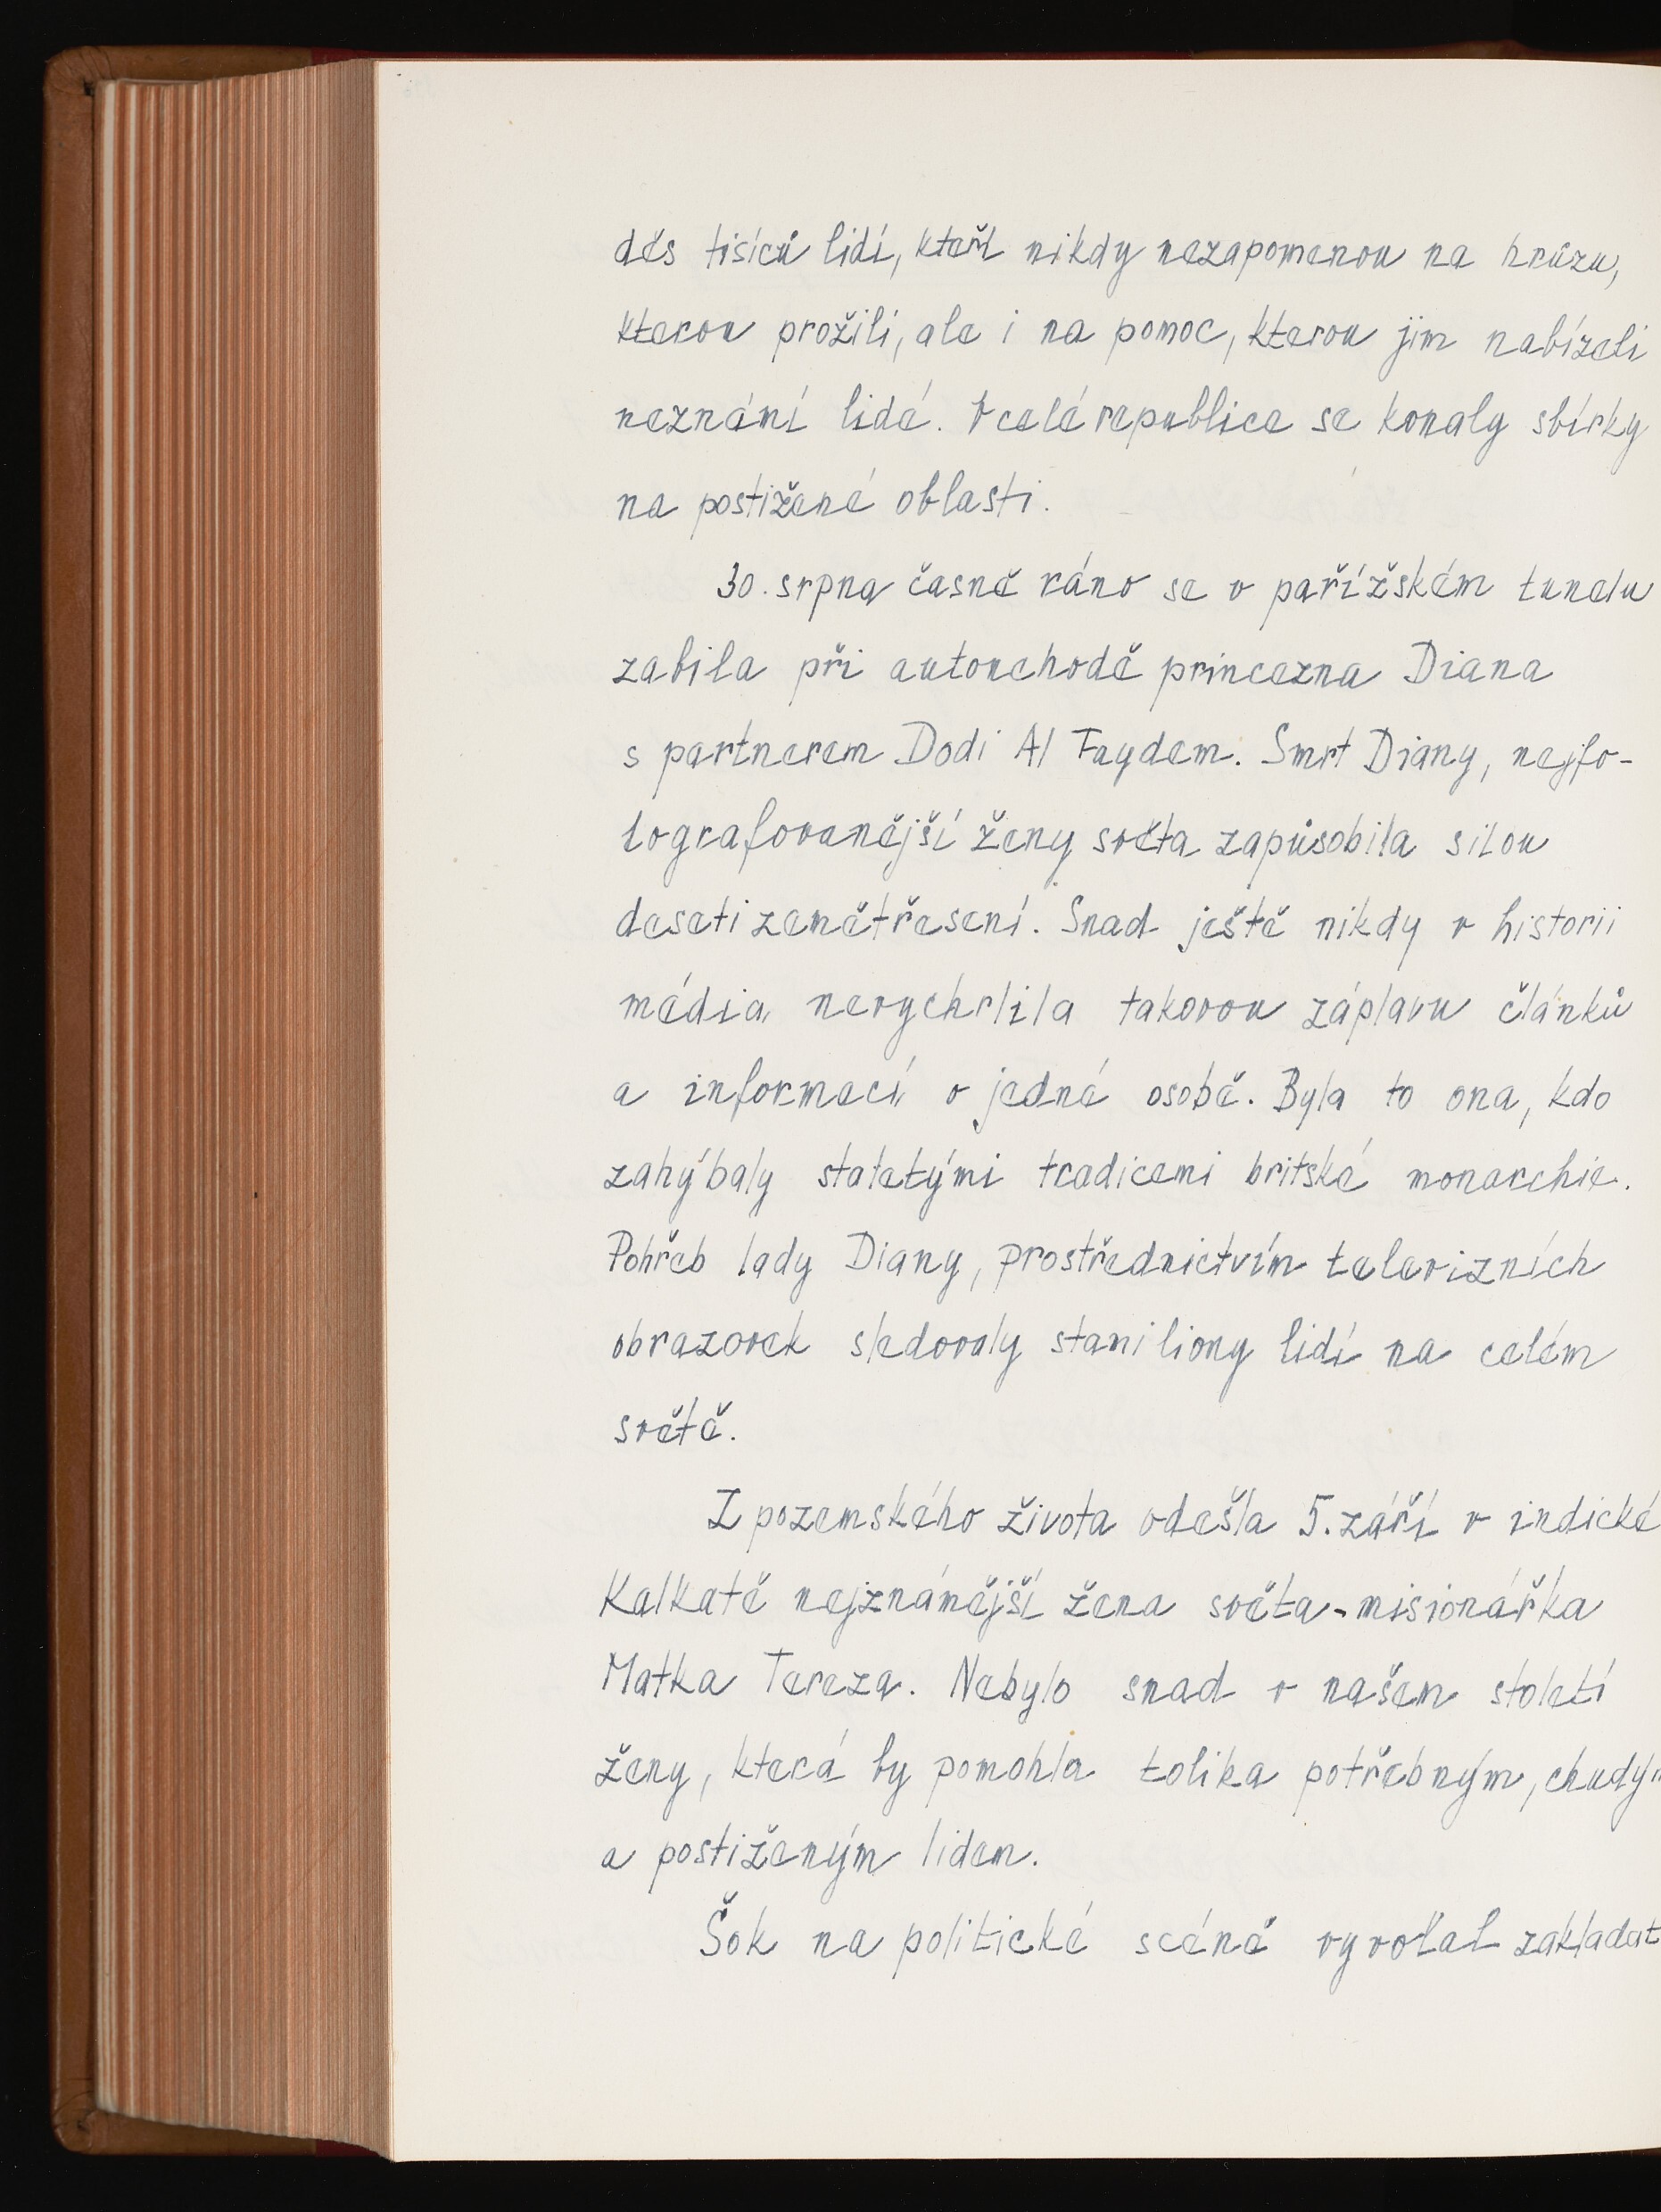 děs tisíců lidí, kteří nikdy nezapomenou na hrůzu,
kterou prožili, ale i na pomoc, kterou jim nabízeli
neznámí lidé. V celé republice se konaly sbírky
na postižené oblasti.
30. srpna časně ráno se v pařížském tunelu
zabila při autonehodě princezna Diana
s partnerem Dodi Al Faydem. Smrt Diany, nejfo-
tografovanější ženy světa zapůsobila silou
deseti zemětřesení. Snad ještě nikdy v historii
média nevychrlila takovou záplavu článků
a informací o jedné osobě. Byla to ona, kdo
zahýbaly staletými tradicemi britské monarchie.
Pohřeb lady Diany, prostřednictvím televizních
obrazovek sledovaly stamiliony lidí na celém
světě.
Z pozemského života odešla 5. září v indické
Kalkatě nejznámější žena světa - misionářka
Matka Tereza. Nebylo snad v našem století
ženy, která by pomohla tolika potřebným, chudým
a postiženým lidem.
Šok na politické scéně vyvolal zakladat